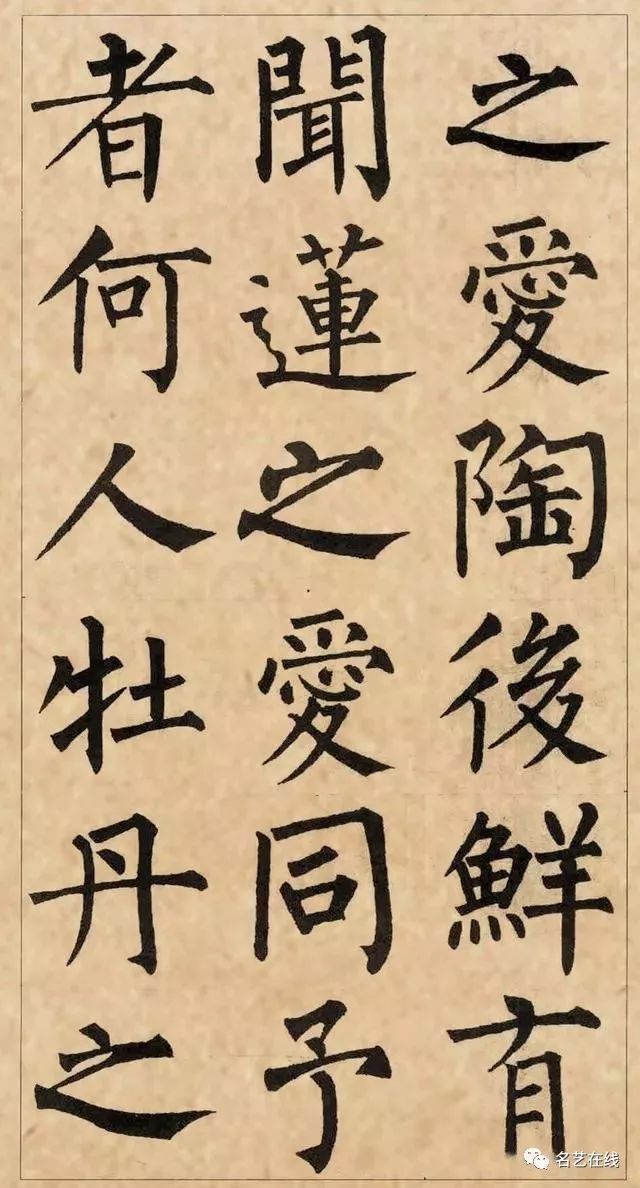 之愛陶後鮮有
聞蓮之愛同予
者何人牡丹之
名艺在线